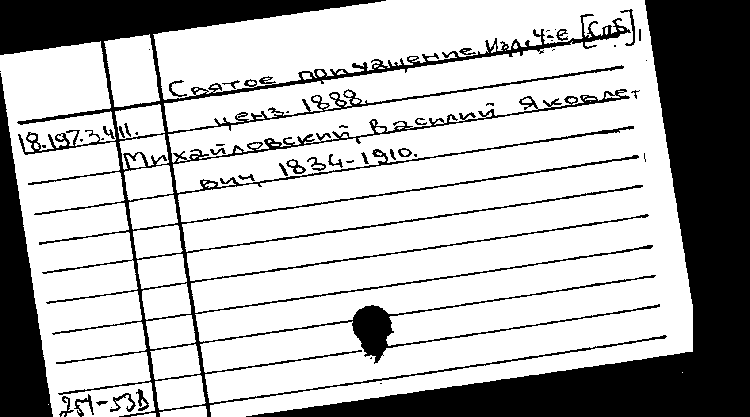 Святое причащение. Изд. 4-е. [СПб],
ценз. 1888.
18.197.3.411.
Михайловский, Василий Яковле-
вич, 1834-1910.
254-53В